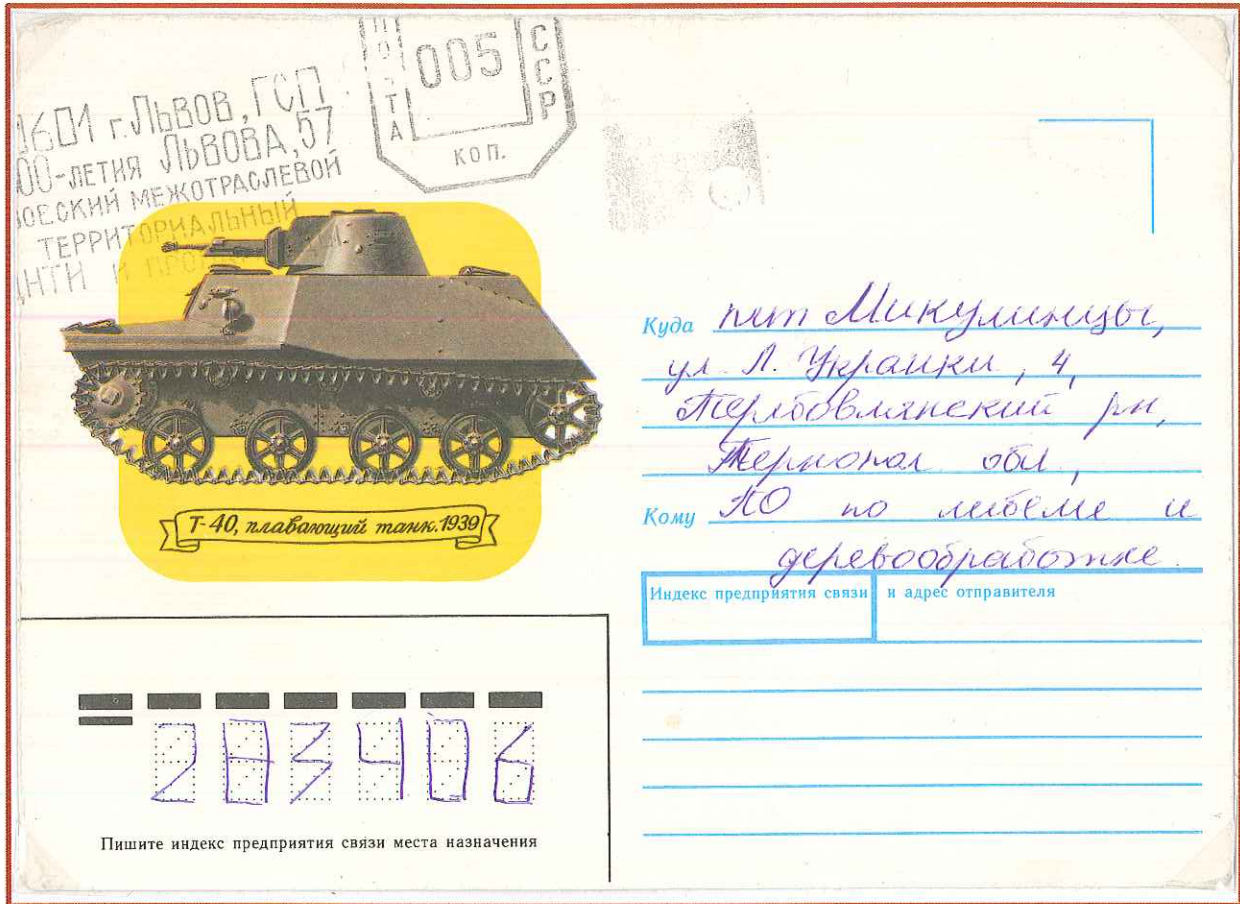 ПОЧТА
005
ССР
КОП.
1601 г. ЛЬВОВ, ГСП
00-ЛЕТИЯ ЛЬВОВА, 57
МЕЖОТРАСЛЕВОЙ
ТЕРРИТОРИАЛЬНЫЙ
НТИ И
Т-40, плавающий танк. 1939
Куда пгт Микулинцы,
ул. Л. Украинки, 4,
Теребовлянский рн,
Тернопол обл,
Кому ПО по мебели и
деревообработке.
Индекс предприятия связи и адрес отправителя
283406
Пишите индекс предприятия связи места назначения